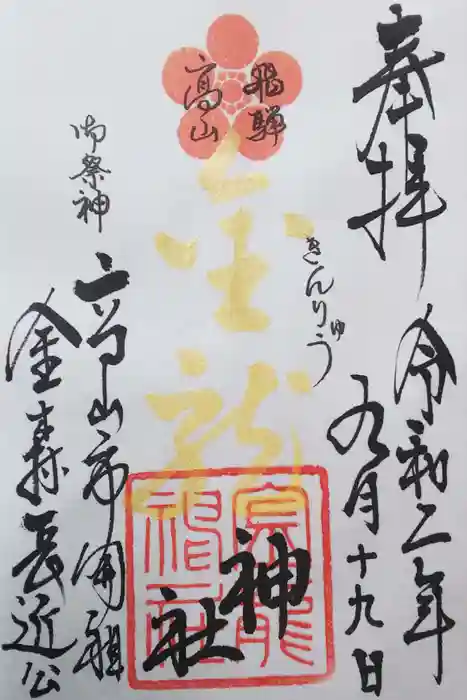 奉拝
令和二年
九月十九日
飛騨
高山
金龍
きんりゅう
神社
御祭神
高山市開祖
金森長近公
金龍神社